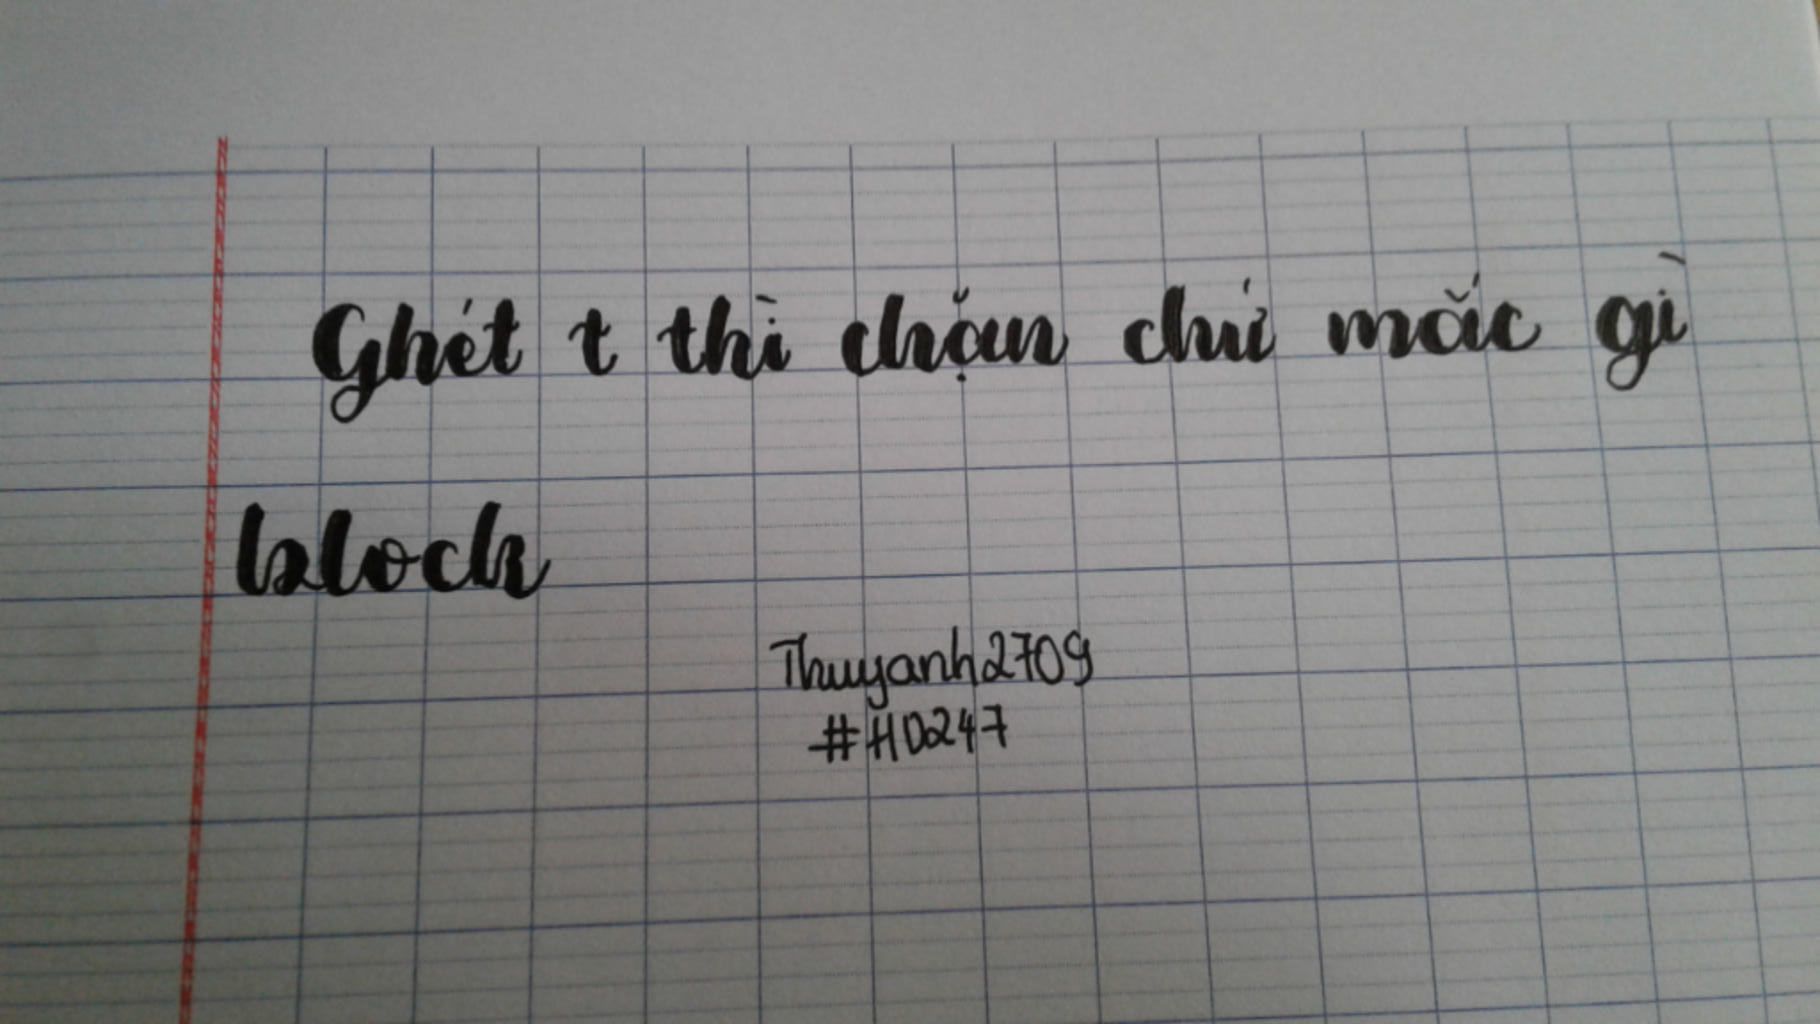 Ghét t thì chặn chứ mắc gì
block
Thuyanh2709
#HD247